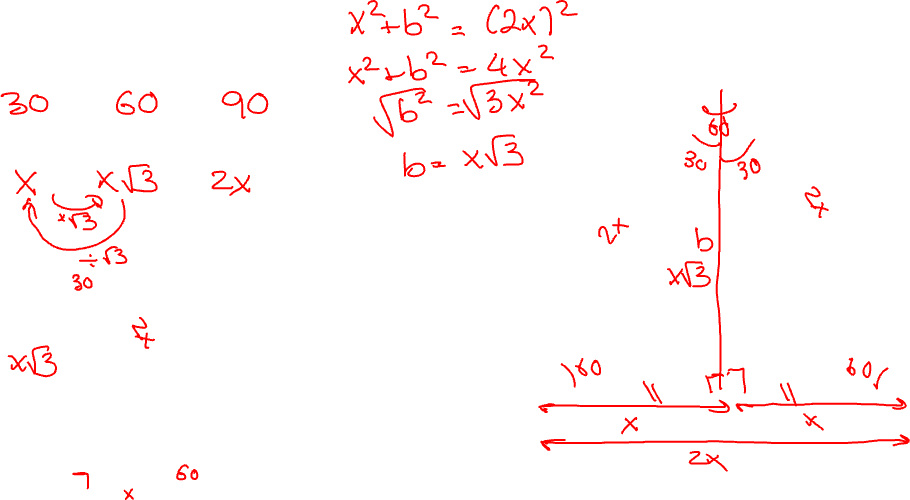 x²+b² = (2x)²
x²+b² = 4x²
√b² = √3x²
b = x√3
30 60 90
x x√3 2x
×√3
÷√3
30
2x
x√3
60
x
60
30 30
2x
2x
b
x√3
60 60
x x
2x